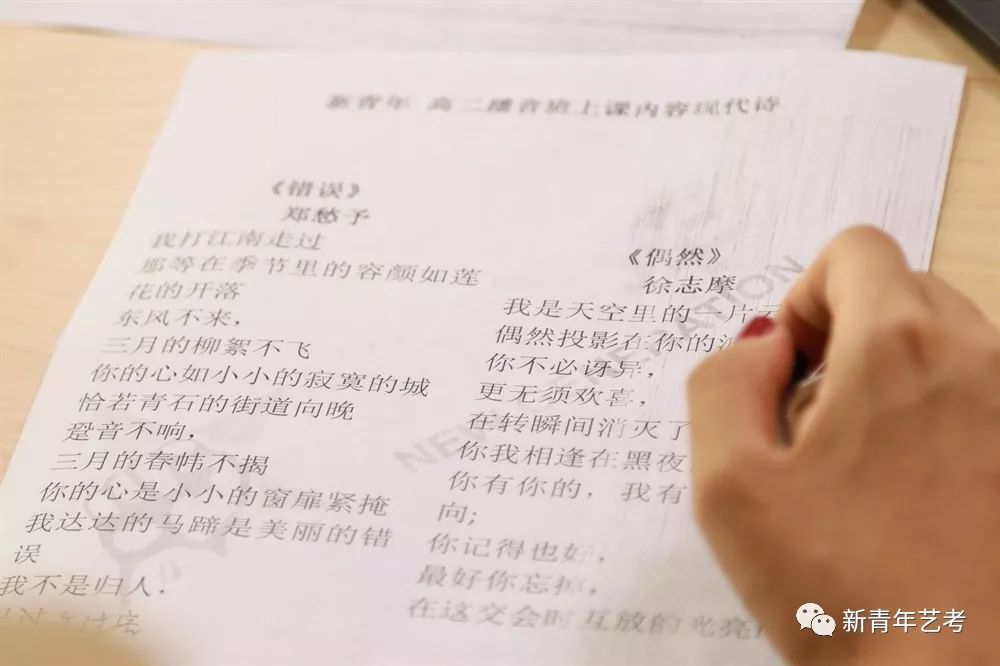 新青年 高二播音班上课内容现代诗
《错误》
郑愁予
我打江南走过
那等在季节里的容颜如莲
花的开落
东风不来，
三月的柳絮不飞
你的心如小小的寂寞的城
恰若青石的街道向晚
跫音不响，
三月的春帏不揭
你的心是小小的窗扉紧掩
我达达的马蹄是美丽的错
误
我不是归人，
《偶然》
徐志摩
我是天空里的一片
偶然投影在你的
你不必讶异，
更无须欢喜，
在转瞬间消灭了
你我相逢在黑夜
你有你的，我有
向;
你记得也好，
最好你忘掉，
在这交会时互放的光亮
NEW GENERATION
新青年艺考